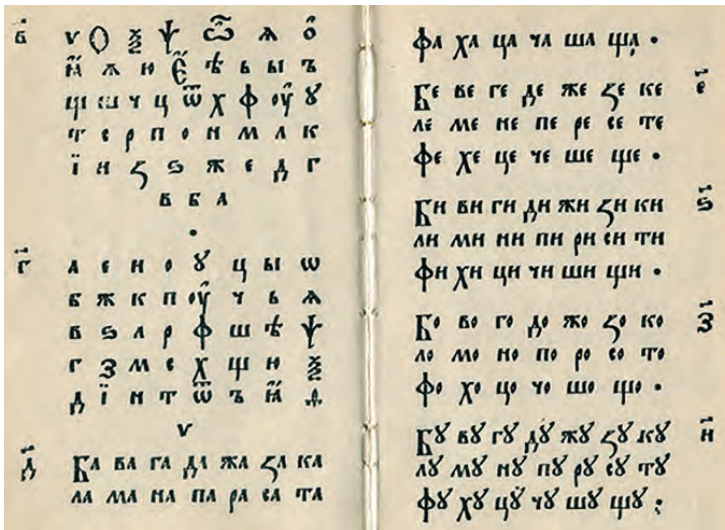 в҃ ѵ Ѻ ѯ ѱ ѽ ѧ о̑
ꙗ ѫ ю є ѣ ь ы ъ
щ ш ч ц ѿ х ф оу ꙋ
т с р п о н м л к
ї и ꙁ ѕ ж е д г
в б а
г҃ а е и о ꙋ ц ы ѡ
б ж к п оу ч ь ѧ
в ѕ л р ф ш ѣ ѱ
г з м с х щ ю ѯ
д ї н т ѿ ъ ꙗ ѳ
ѵ
д҃ Ба ва га да жа ꙁа ка
ла ма на па ра са та
фа ха ца ча ша ща .
Бе ве ге де же ꙁе ке е҃
ле ме не пе ре се те
фе хе це че ше ще .
Би ви ги ди жи ꙁи ки ѕ҃
ли ми ни пи ри си ти
фи хи ци чи ши щи .
Бо во го до жо ꙁо ко з҃
ло мо но по ро со то
фо хо цо чо шо що .
Бꙋ вꙋ гꙋ дꙋ жꙋ ꙁꙋ кꙋ и҃
лꙋ мꙋ нꙋ пꙋ рꙋ сꙋ тꙋ
фꙋ хꙋ цꙋ чꙋ шꙋ щꙋ ;